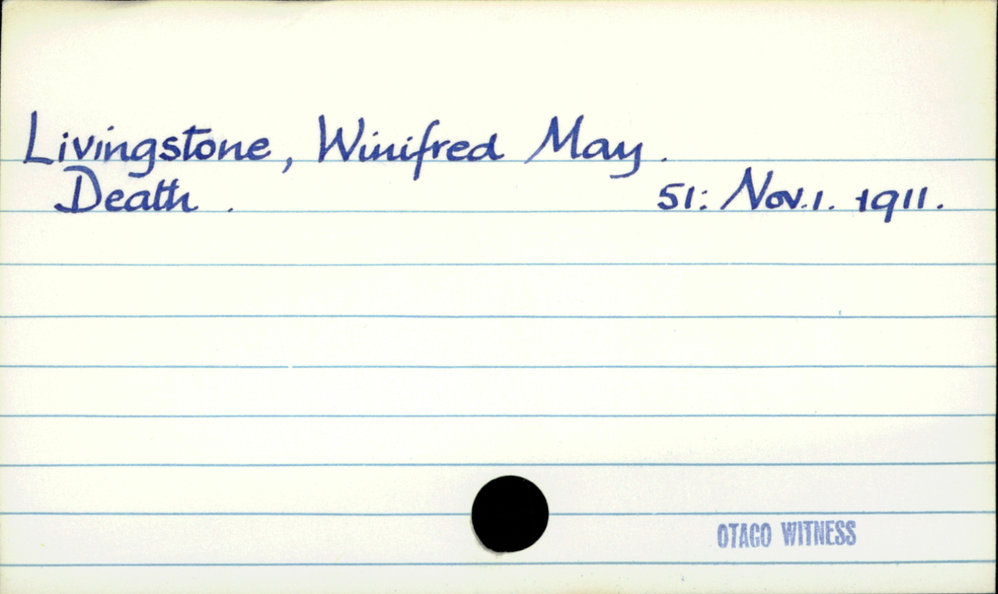 Livingstone, Winifred May.
Death. 51: Nov. 1. 1911.
OTAGO WITNESS